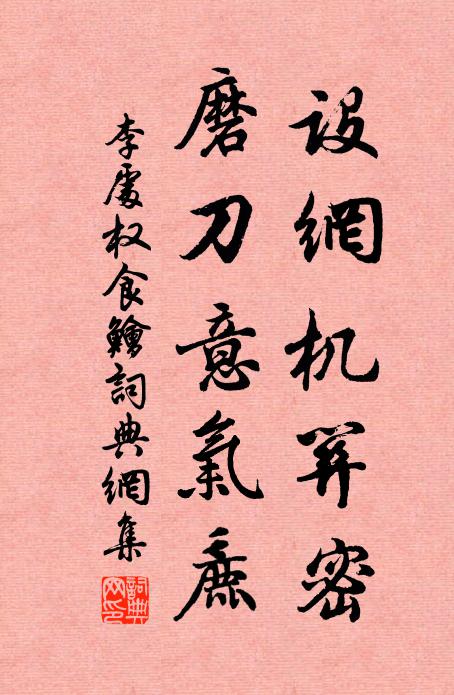 設網机穽密
磨刀意氣麤
李處权食鱠詞典網集
詞典
网印